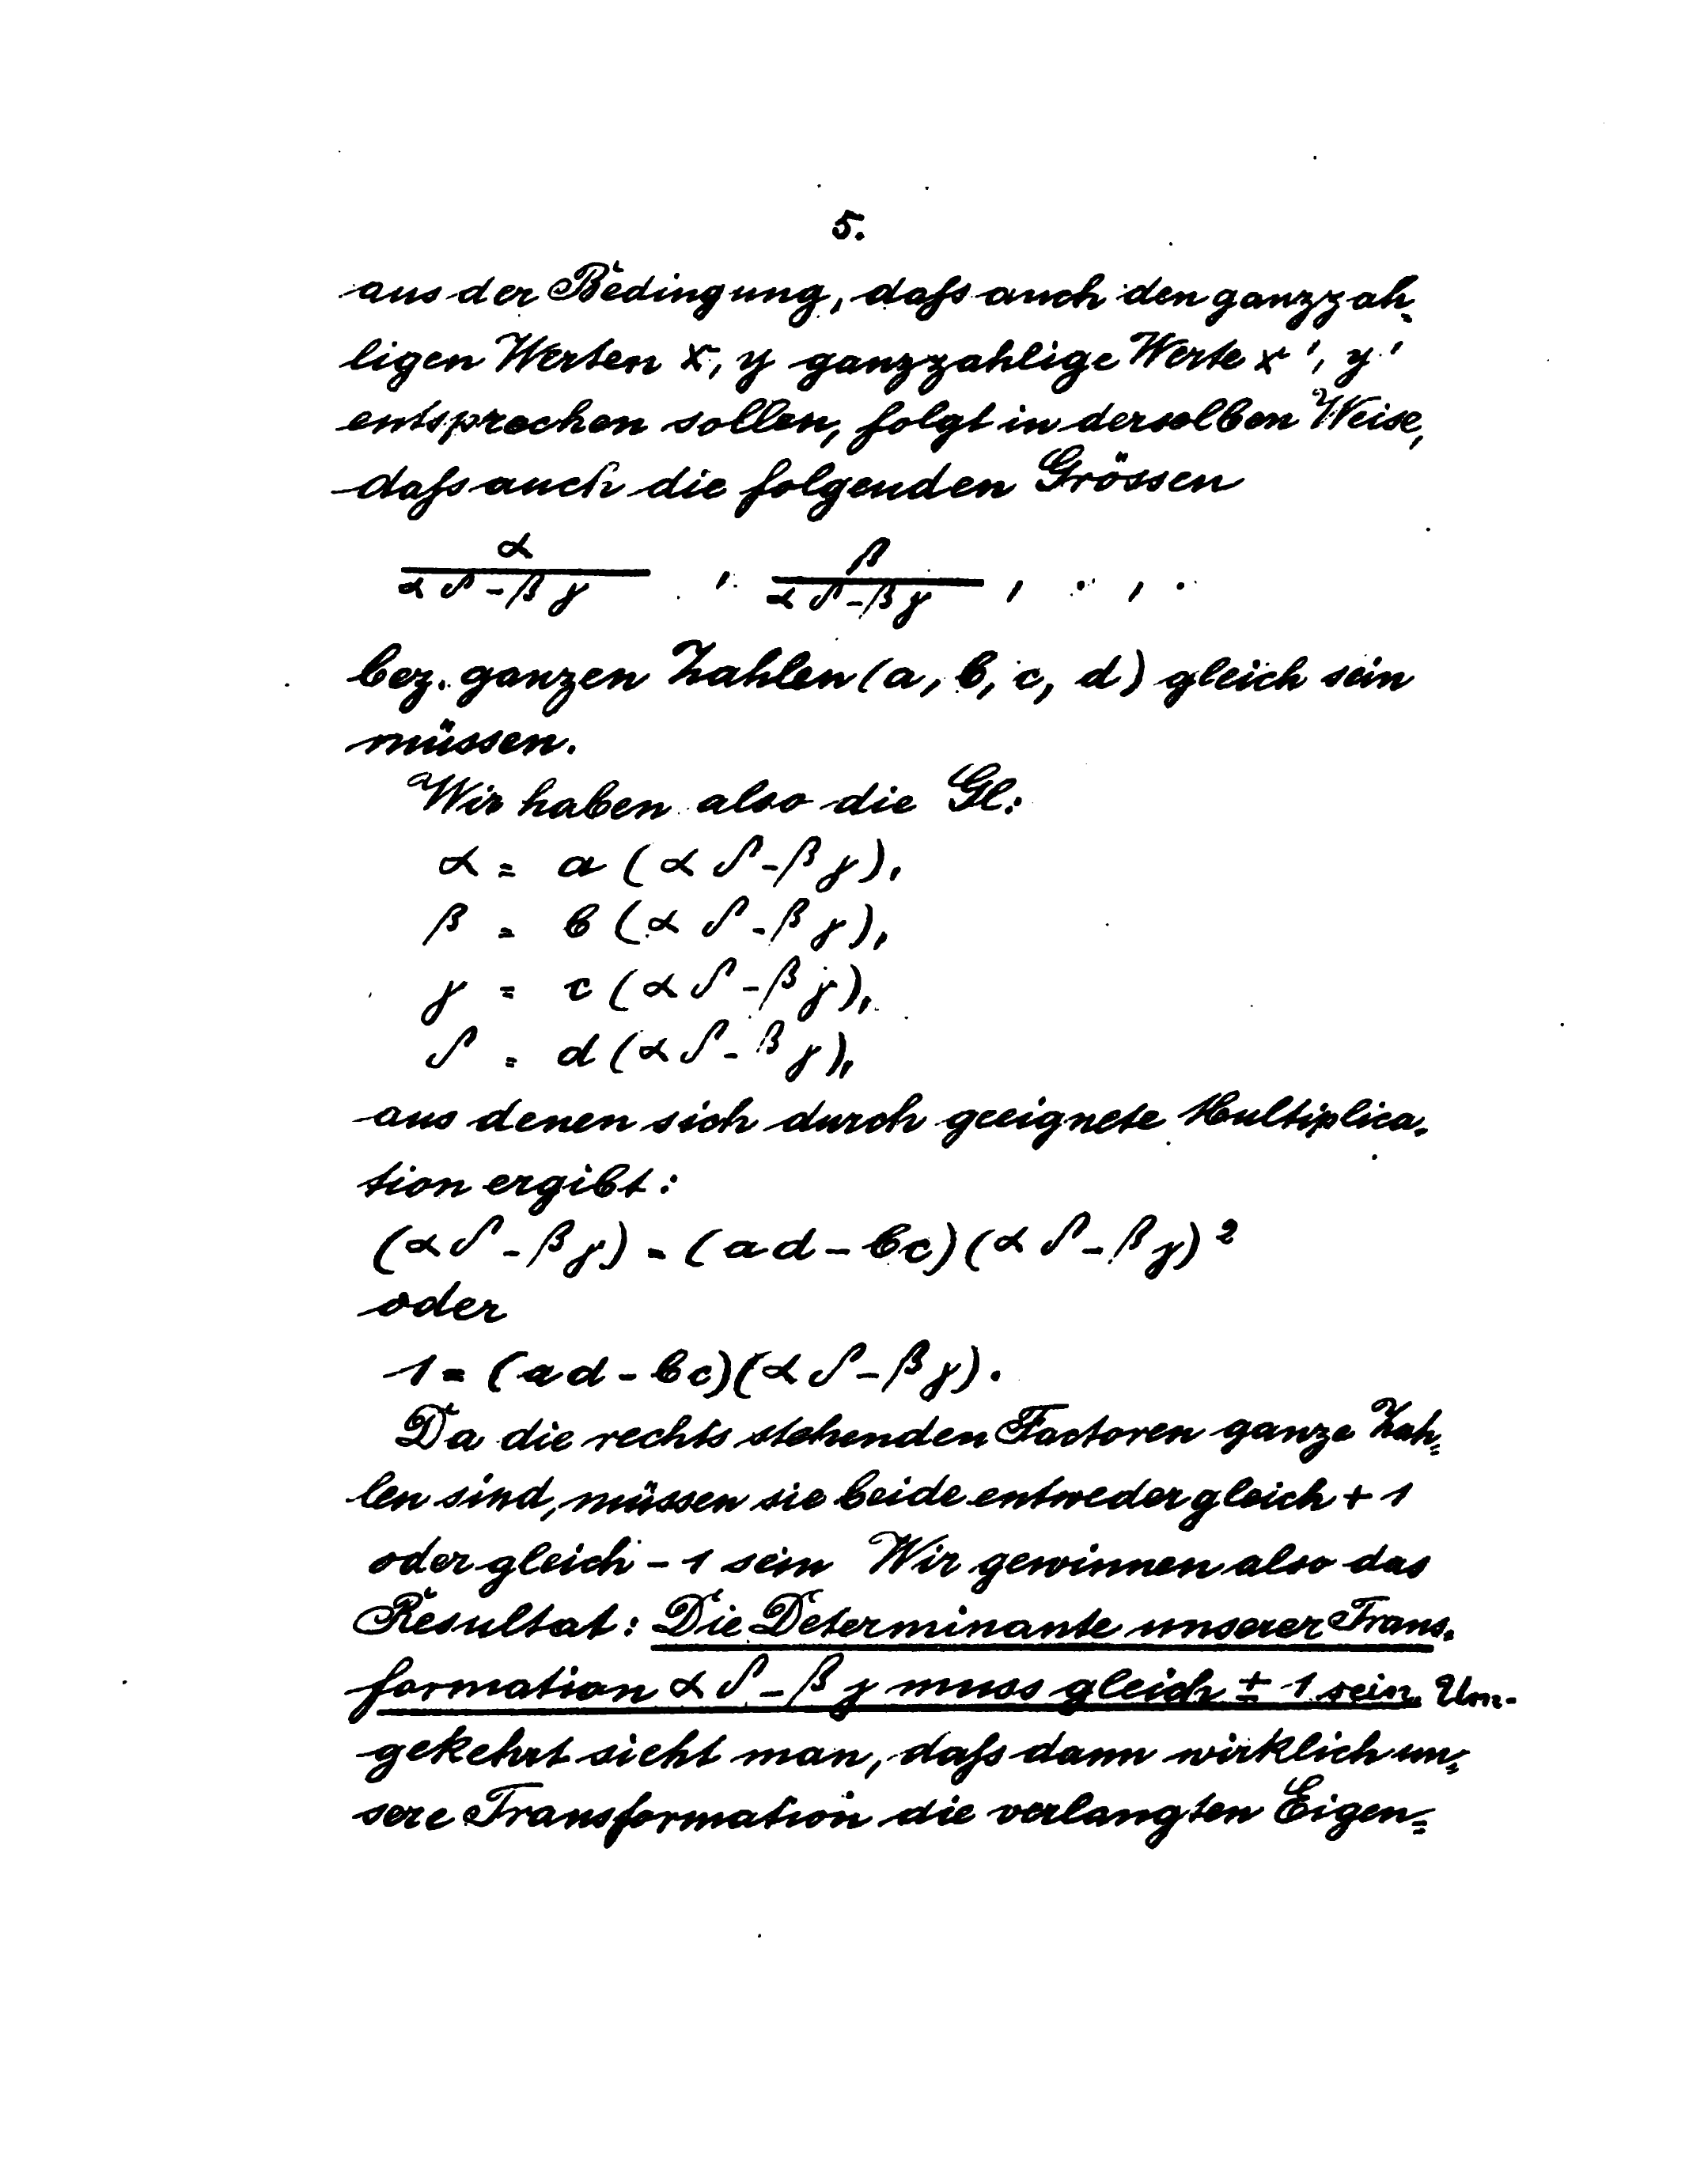 5.
aus der Bedingung, daſs auch den ganzzah-
ligen Werten x, y ganzzahlige Werte x', y'
entsprechen sollen, folgt in derselben Weise,
daſs auch die folgenden Grössen
α/(αδ-βγ) , β/(αδ-βγ) , · , ·
bez. ganzen Zahlen (a, b, c, d) gleich sein
müssen.
Wir haben also die Gl:
α = a (αδ-βγ),
β = b (αδ-βγ),
γ = c (αδ-βγ),
δ = d (αδ-βγ),
aus denen sich durch geeignete Multiplica-
tion ergibt:
(αδ-βγ) = (ad-bc)(αδ-βγ)²
oder
1 = (ad-bc)(αδ-βγ).
Da die rechts stehenden Factoren ganze Zah=
len sind, müssen sie beide entweder gleich + 1
oder gleich - 1 sein Wir gewinnen also das
Resultat: Die Determinante unserer Trans-
formation αδ-βγ muss gleich ± 1 sein. Um-
gekehrt sieht man, daſs dann wirklich un=
sere Transformation die verlangten Eigen=